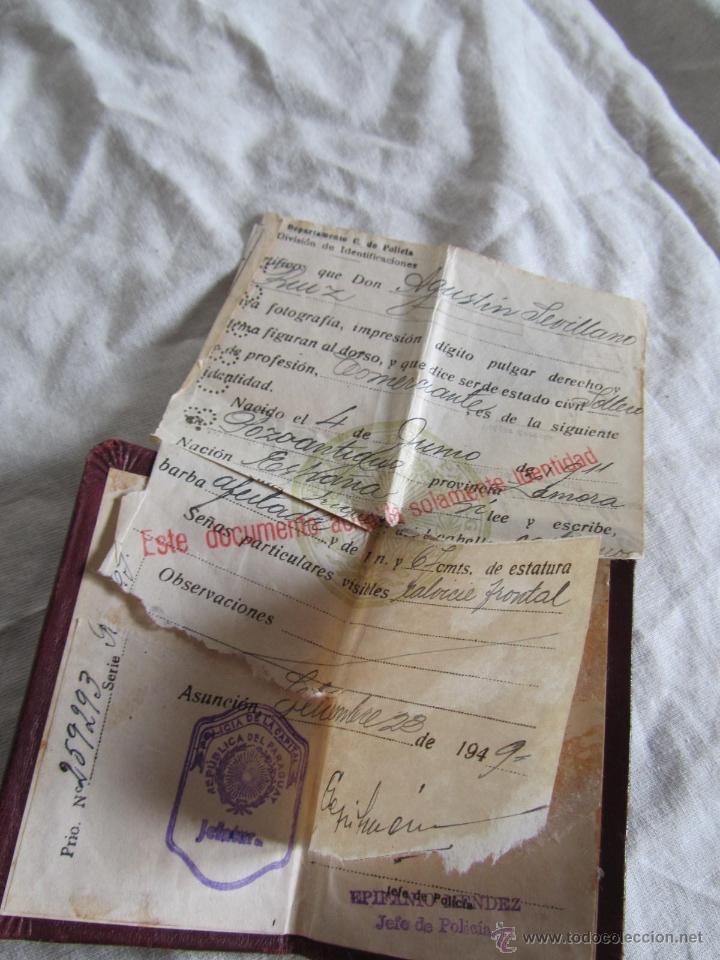 Departamento C. de Policía
División de Identificaciones
que Don Agustín Sevillano
Ruiz
fotografía, impresión dígito pulgar derecho y
figuran al dorso, y que dice ser de estado civil Soltero
de profesión, Comerciante, es de la siguiente
identidad.
Nacido el 4 de Junio de 911
Pozoantiguo provincia Zamora
Nación España lee y escribe,
barba afeitada y de 1 n. y 67 cmts. de estatura
Este documento solamente identidad
Señas particulares visibles Calvicie frontal
Observaciones
Asunción, Setiembre 23 de 1949
Prio. Nº 259293 Serie
POLICIA DE LA CAPITAL
REPÚBLICA DEL PARAGUAY
Jefatura
Jefe de Policía
EPIFANIO MENDEZ
Jefe de Policía
© www.todocoleccion.net